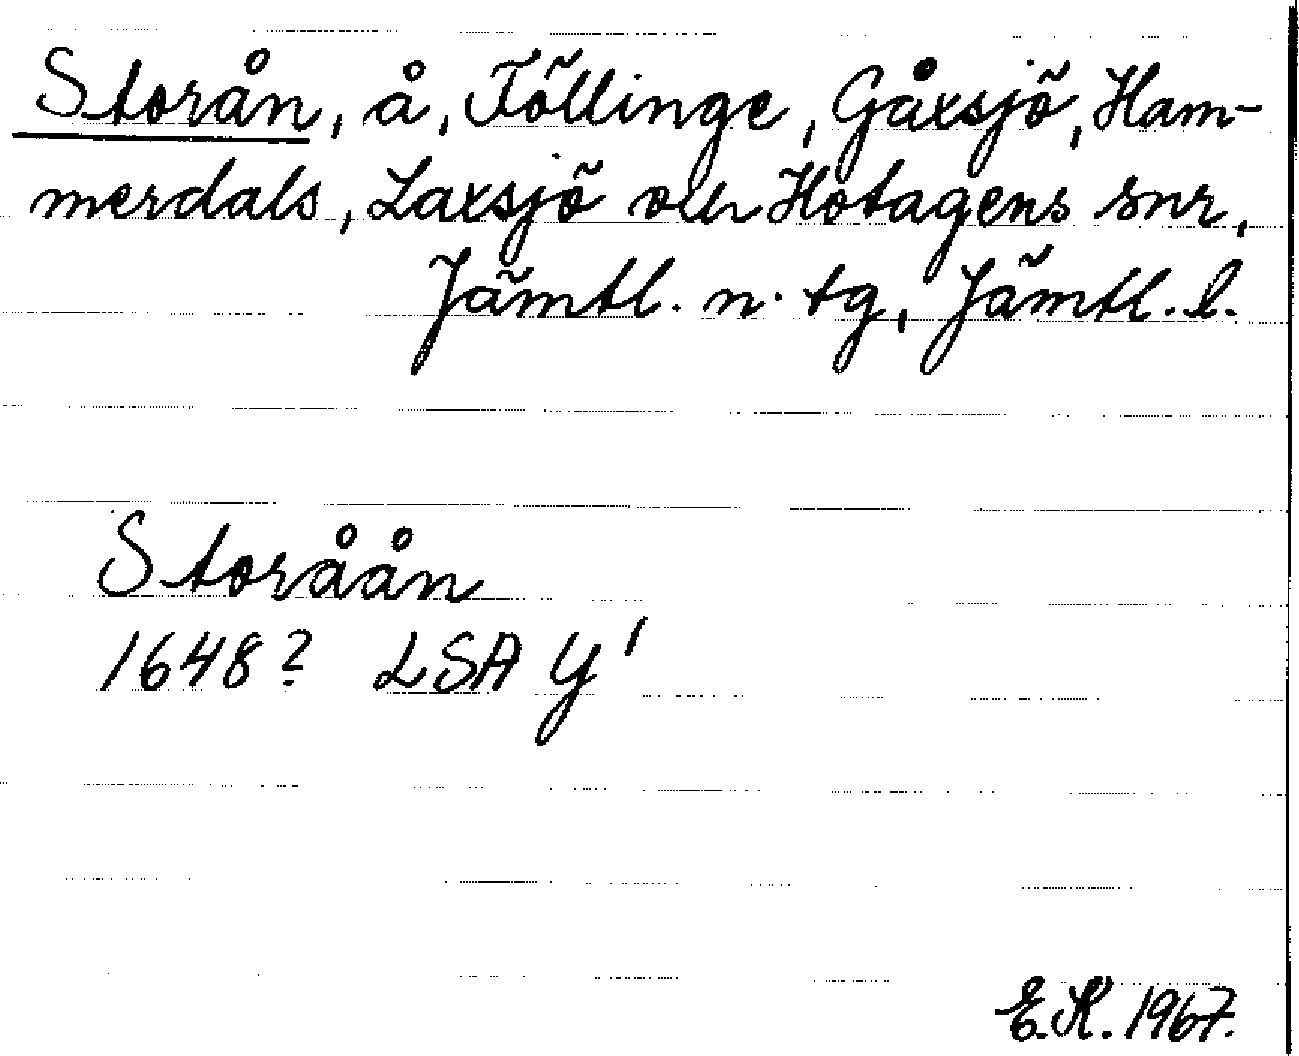 Storån, å, Föllinge, Gåxsjö, Ham-
merdals, Laxsjö och Hotagens snr,
Jämtl. n. tg, Jämtl. l.
Storåån
1648? LSA Y'
E.K. 1967.